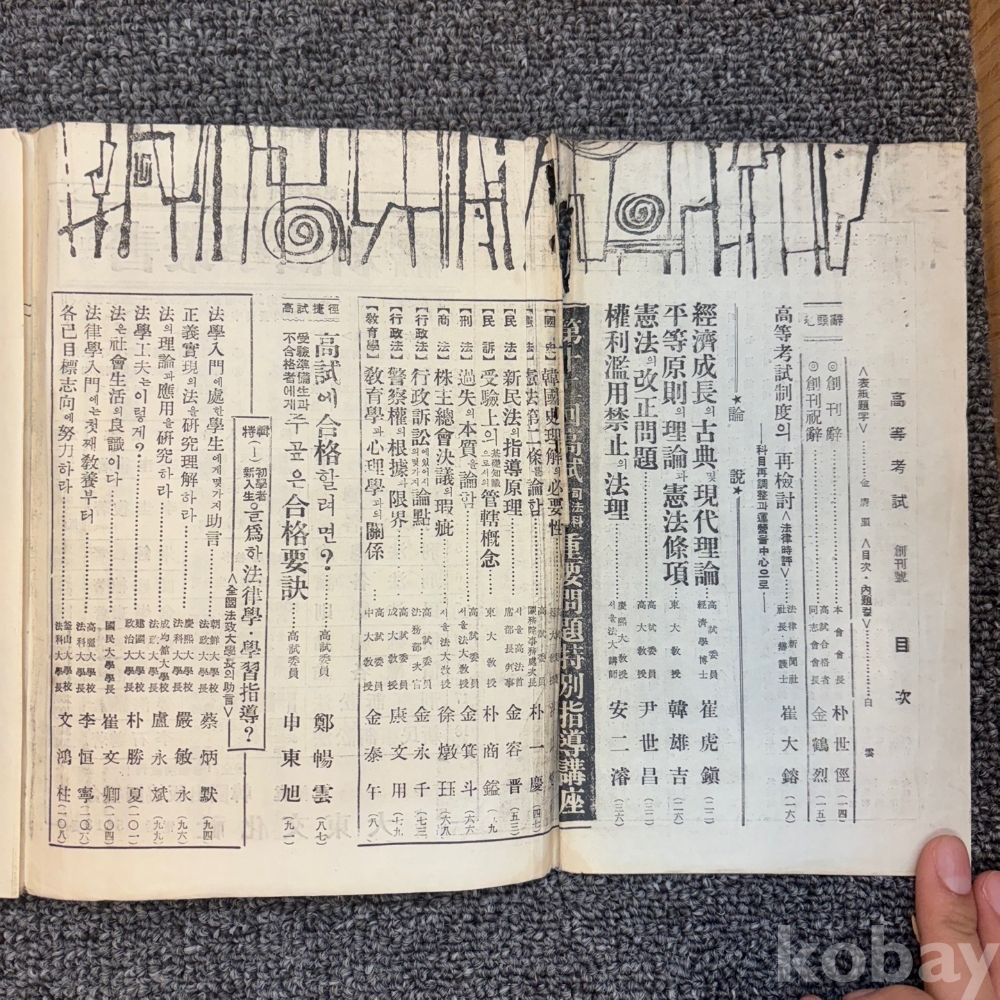 高等考試 創刊號 目次
<表紙題字>……金 <目次・內題컽>……白 雲
卷頭辭
◎創刊辭…… 本會會長 朴世俓 (一四)
◎創刊祝辭…… 高試合格者同志會會長 金鶴烈 (一五)
高等考試制度의 再檢討 <法律時評> 法律新聞社社長・辯護士 崔大鎔 (一六)
—科目再調整과 運營을 中心으로—
★論說★
經濟成長의 古典 및 現代理論 高試委員 經濟學博士 崔虎鎭 (二二)
平等原則의 理論과 憲法條項 東大敎授 韓雄吉 (二六)
憲法의 改正問題 高大敎授 尹世昌
權利濫用禁止의 法理 慶熙大敎授 서울法大講師 安二濬 (三六)
回高試司法科重要問題特別指導講座
【國史】韓國史理解의 必要性
憲法第二條를 論함 高試委員 國務院事務處次長 朴一慶 (四七)
【民法】新民法의 指導原理 서울高法首席部長判事 金容晋 (五三)
【民訴】受驗上의 基礎知識으로서의 管轄槪念 東大敎授 朴商鎰
【刑法】過失의 本質을 論함 高試委員 金箕斗
【商法】株主總會決議의 瑕疵 서울法大敎授 徐燉珏 (六八)
【行政法】行政訴訟에 있어서의 몇가지 論點 法務部次官 金永千 (七三)
【行政法】警察權의 根據와 限界 成大敎授 高試委員 康文用
【敎育學】敎育學과 心理學과의 關係 中大敎授 金泰午
高試捷徑
高試에 合格할려면?…… 高試委員 鄭暢雲 (八七)
受驗準備生과 不合格者에게 주고 싶은 合格要訣…… 高試委員 申東旭 (九一)
特輯(一) 初學者 新入生을 爲한 法律學・學習指導?
<全國法政大學長의 助言>
法學入門에 處한 學生에게 몇가지 助言…… 朝鮮大學校法政大學長 蔡炳默 (九四)
正義實現의 法을 硏究理解하라…… 慶熙大學校法科大學長 嚴敏永 (九六)
法의 理論과 應用을 硏究하라…… 成均館大學校法政大學長 盧永斌 (九九)
法學工夫는 이렇게?…… 建國大學校政治大學長 朴勝夏 (一〇一)
法은 社會生活의 良識이다…… 國民大學學長 崔文卿 (一〇四)
法律學入門에는 첫째 敎養부터…… 高麗大學校法科大學長 李恒寧 (一〇六)
各己 目標志向에 努力하라…… 釜山大學校法科大學長 文鴻柱 (一〇八)
kobay